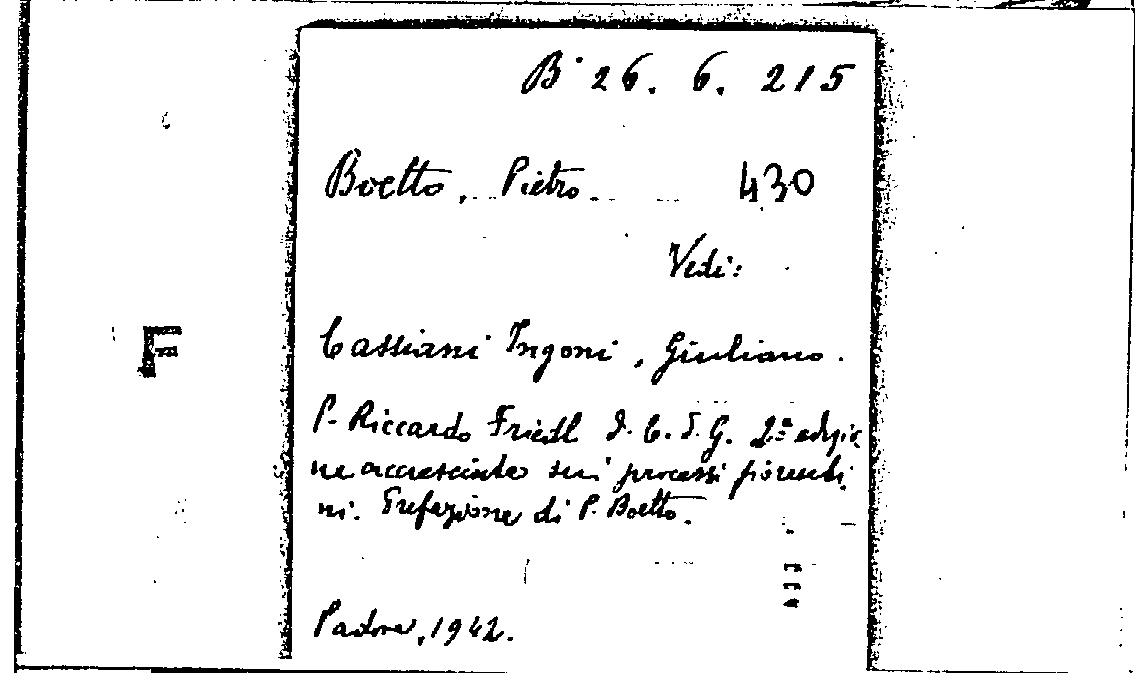 B° 26. 6. 215
Boetto, Pietro. 430
Vedi:
F
Cassiani Ingoni, Giuliano.
P. Riccardo Friedl d. C. d. G. 2ª edizio
ne accresciuta sui processi fiorenti
ni. Prefazione di P. Boetto.
Padova, 1942.